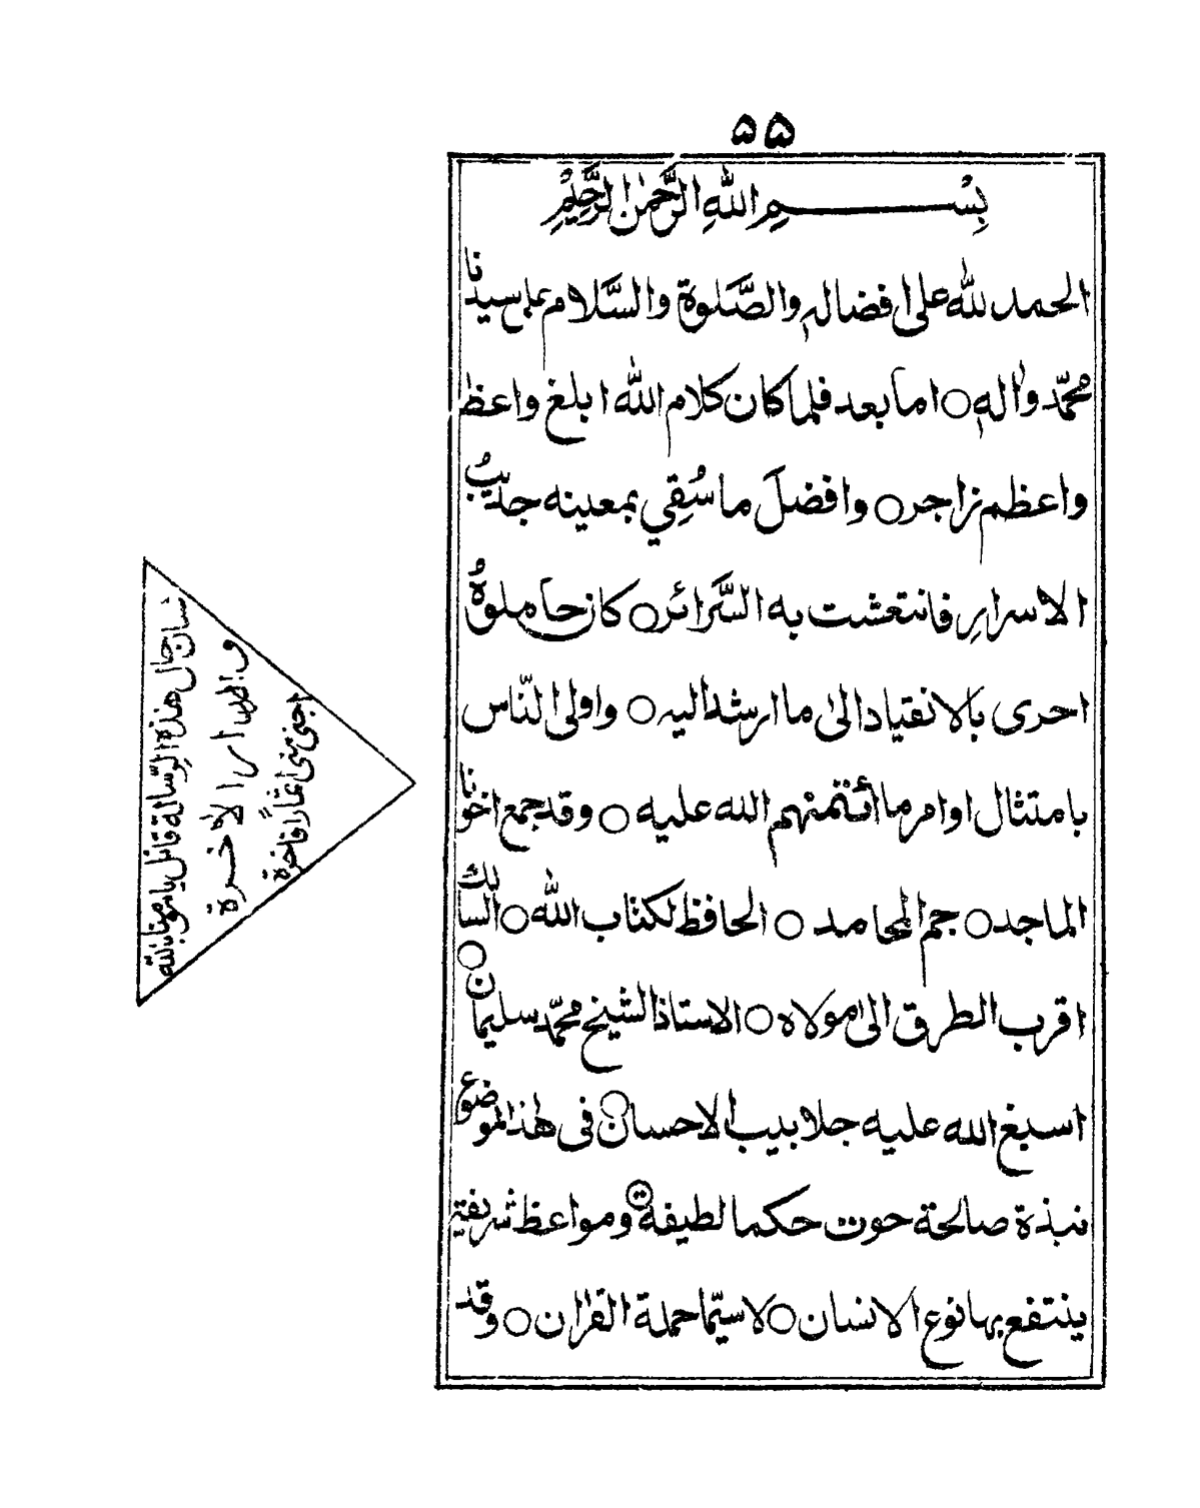 ۵۵
بِسْمِ اللهِ الرَّحْمٰنِ الرَّحِيْمِ
الحمد للّٰه على افضاله والصَّلوة والسَّلام على سيدنا
محمّد واٰله ○ اما بعد فلما كان كلام اللّٰه ابلغ واعظ
واعظم زاجر ○ وافضلَ ما سُقِي بمعينه جديبُ
الاسرارِ فانتعشت به السَّرائر ○ كان حاملوهُ
احرى بالانقياد الىٰ ما ارشد اليه ○ واولى النّاس
بامتثال اوامر ما ائتمنهم الله عليه ○ وقد جمع اخونا
الماجد ○ جم المحامد ○ الحافظ لكتاب اللّٰه ○ السالك
اقرب الطرق الى مولاه ○ الاستاذ الشيخ محمّد سليمان ○
اسبغ الله عليه جلابيب الاحسان ○ فى هذا الموضوع
نبذة صالحة حوت حكما لطيفة ○ ومواعظ شريفة
ينتفع بها نوع الانسان ○ لا سيّما حملة القراٰن ○ وقد
لسان حال هذه الرّسالة قائل يا مؤمنا بالله
والدار الاٰخرة
اجنى منى اثمارًا فاخرة